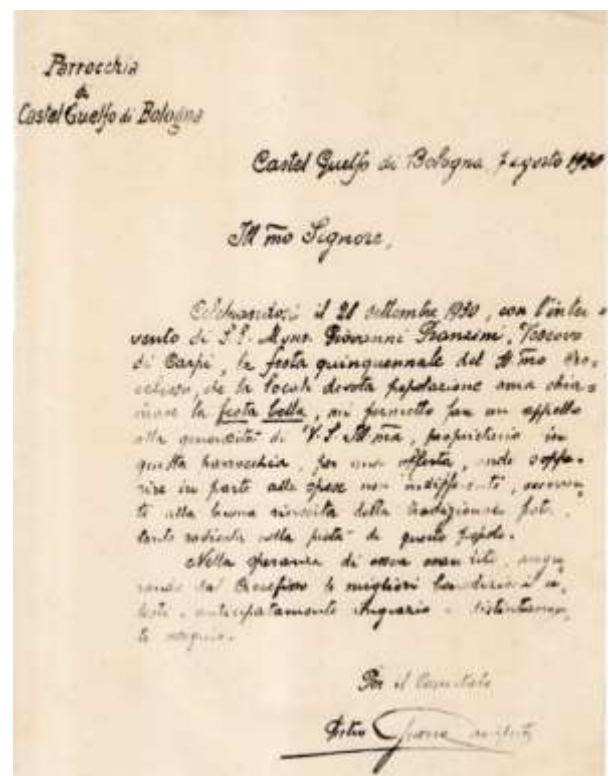 Parrocchia
di
Castel Guelfo di Bologna
Castel Guelfo di Bologna, 7 agosto 1930
Ill mo Signore,
Celebrandosi il 21 settembre 1930, con l'inter-
vento di S. E. Mons. Giovanni Pranzini, Vescovo
di Carpi, la festa quinquennale del SS mo Cro-
cifisso, che la locale devota popolazione ama chia-
mare la festa bella, mi permetto fare un appello
alla generosità di V. S. Ill ma, proprietario in
questa parrocchia, per una offerta, onde soppe-
rire in parte alle spese non indifferenti, occorren-
ti alla buona riuscita della tradizionale festa,
tanto radicata nella pietà di questo popolo.
Nella speranza di essere esaudito, augu-
rando dal Crocefisso le migliori benedizioni ce-
lesti, anticipatamente ringrazio e distintamen-
te ossequio.
Per il Comitato